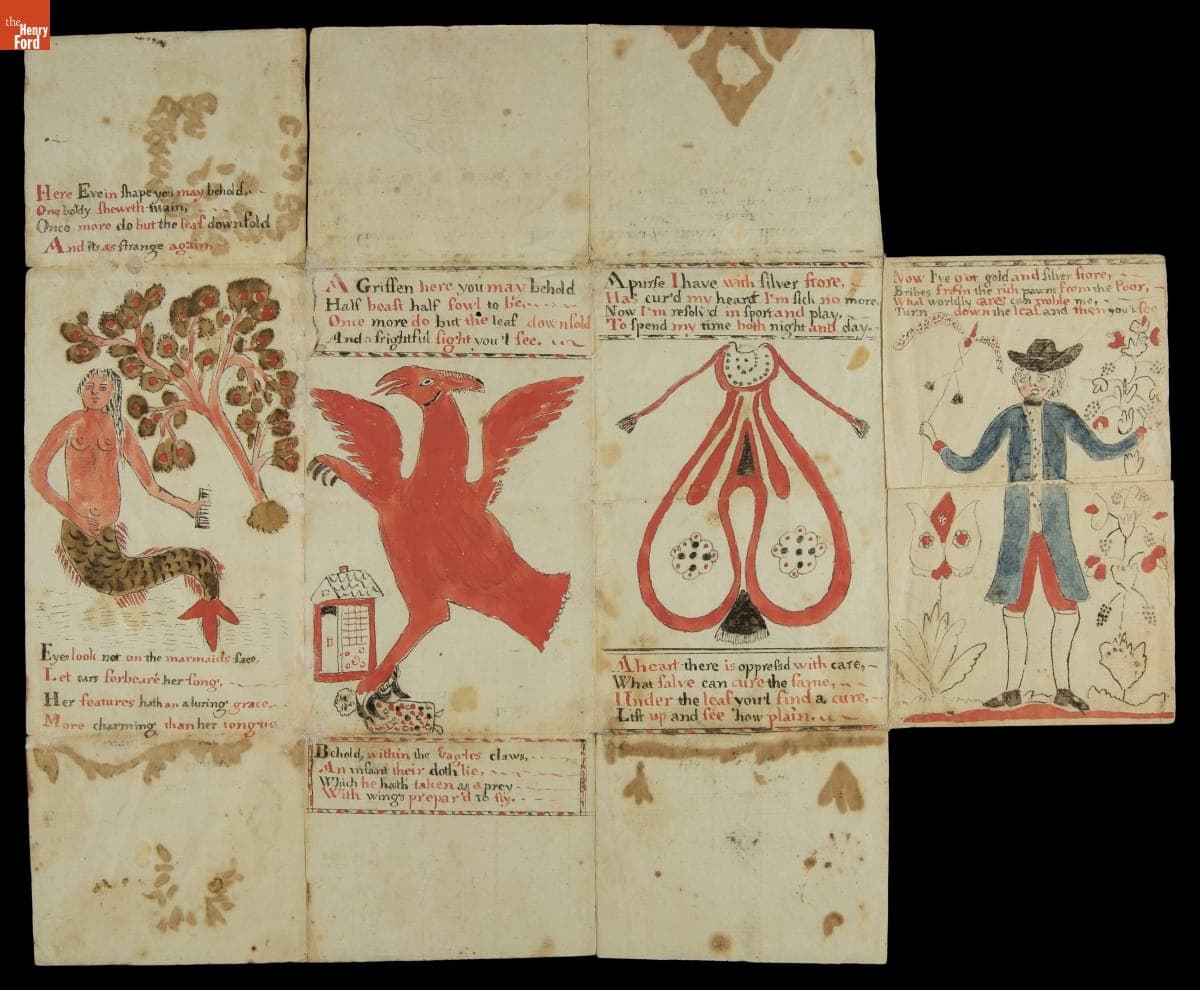 the
Henry
Ford
Here Eve in ſhape you may behold,
One body ſheweth twain,
Once more do but the leaf downfold
And its as ſtrange again,
Eyes look not on the marmaids face,
Let ears forbeare her ſong,
Her features hath an aluring grace,
More charming than her tongue
A Griffen here you may behold
Half beaſt half fowl to be,
Once more do but the leaf downfold
And a frightful ſight you'l ſee,
Behold, within the Eagles claws,
An infant their doth lie,
Which he hath taken as a prey
With wings prepar'd to fly.
A purse I have with ſilver ſtore,
Has cur'd my heart I'm ſick no more,
Now I'm reſolv'd in ſport and play,
To ſpend my time both night and day.
A heart there is oppreſsd with care,
What ſalve can cure the ſame,
Under the leaf you'l find a cure,
Lift up and ſee how plain.
Now I've got gold and ſilver ſtore,
Bribes from the rich pawns from the Poor,
What worldly cares can troble me,
Turn down the leaf and then you'l ſee